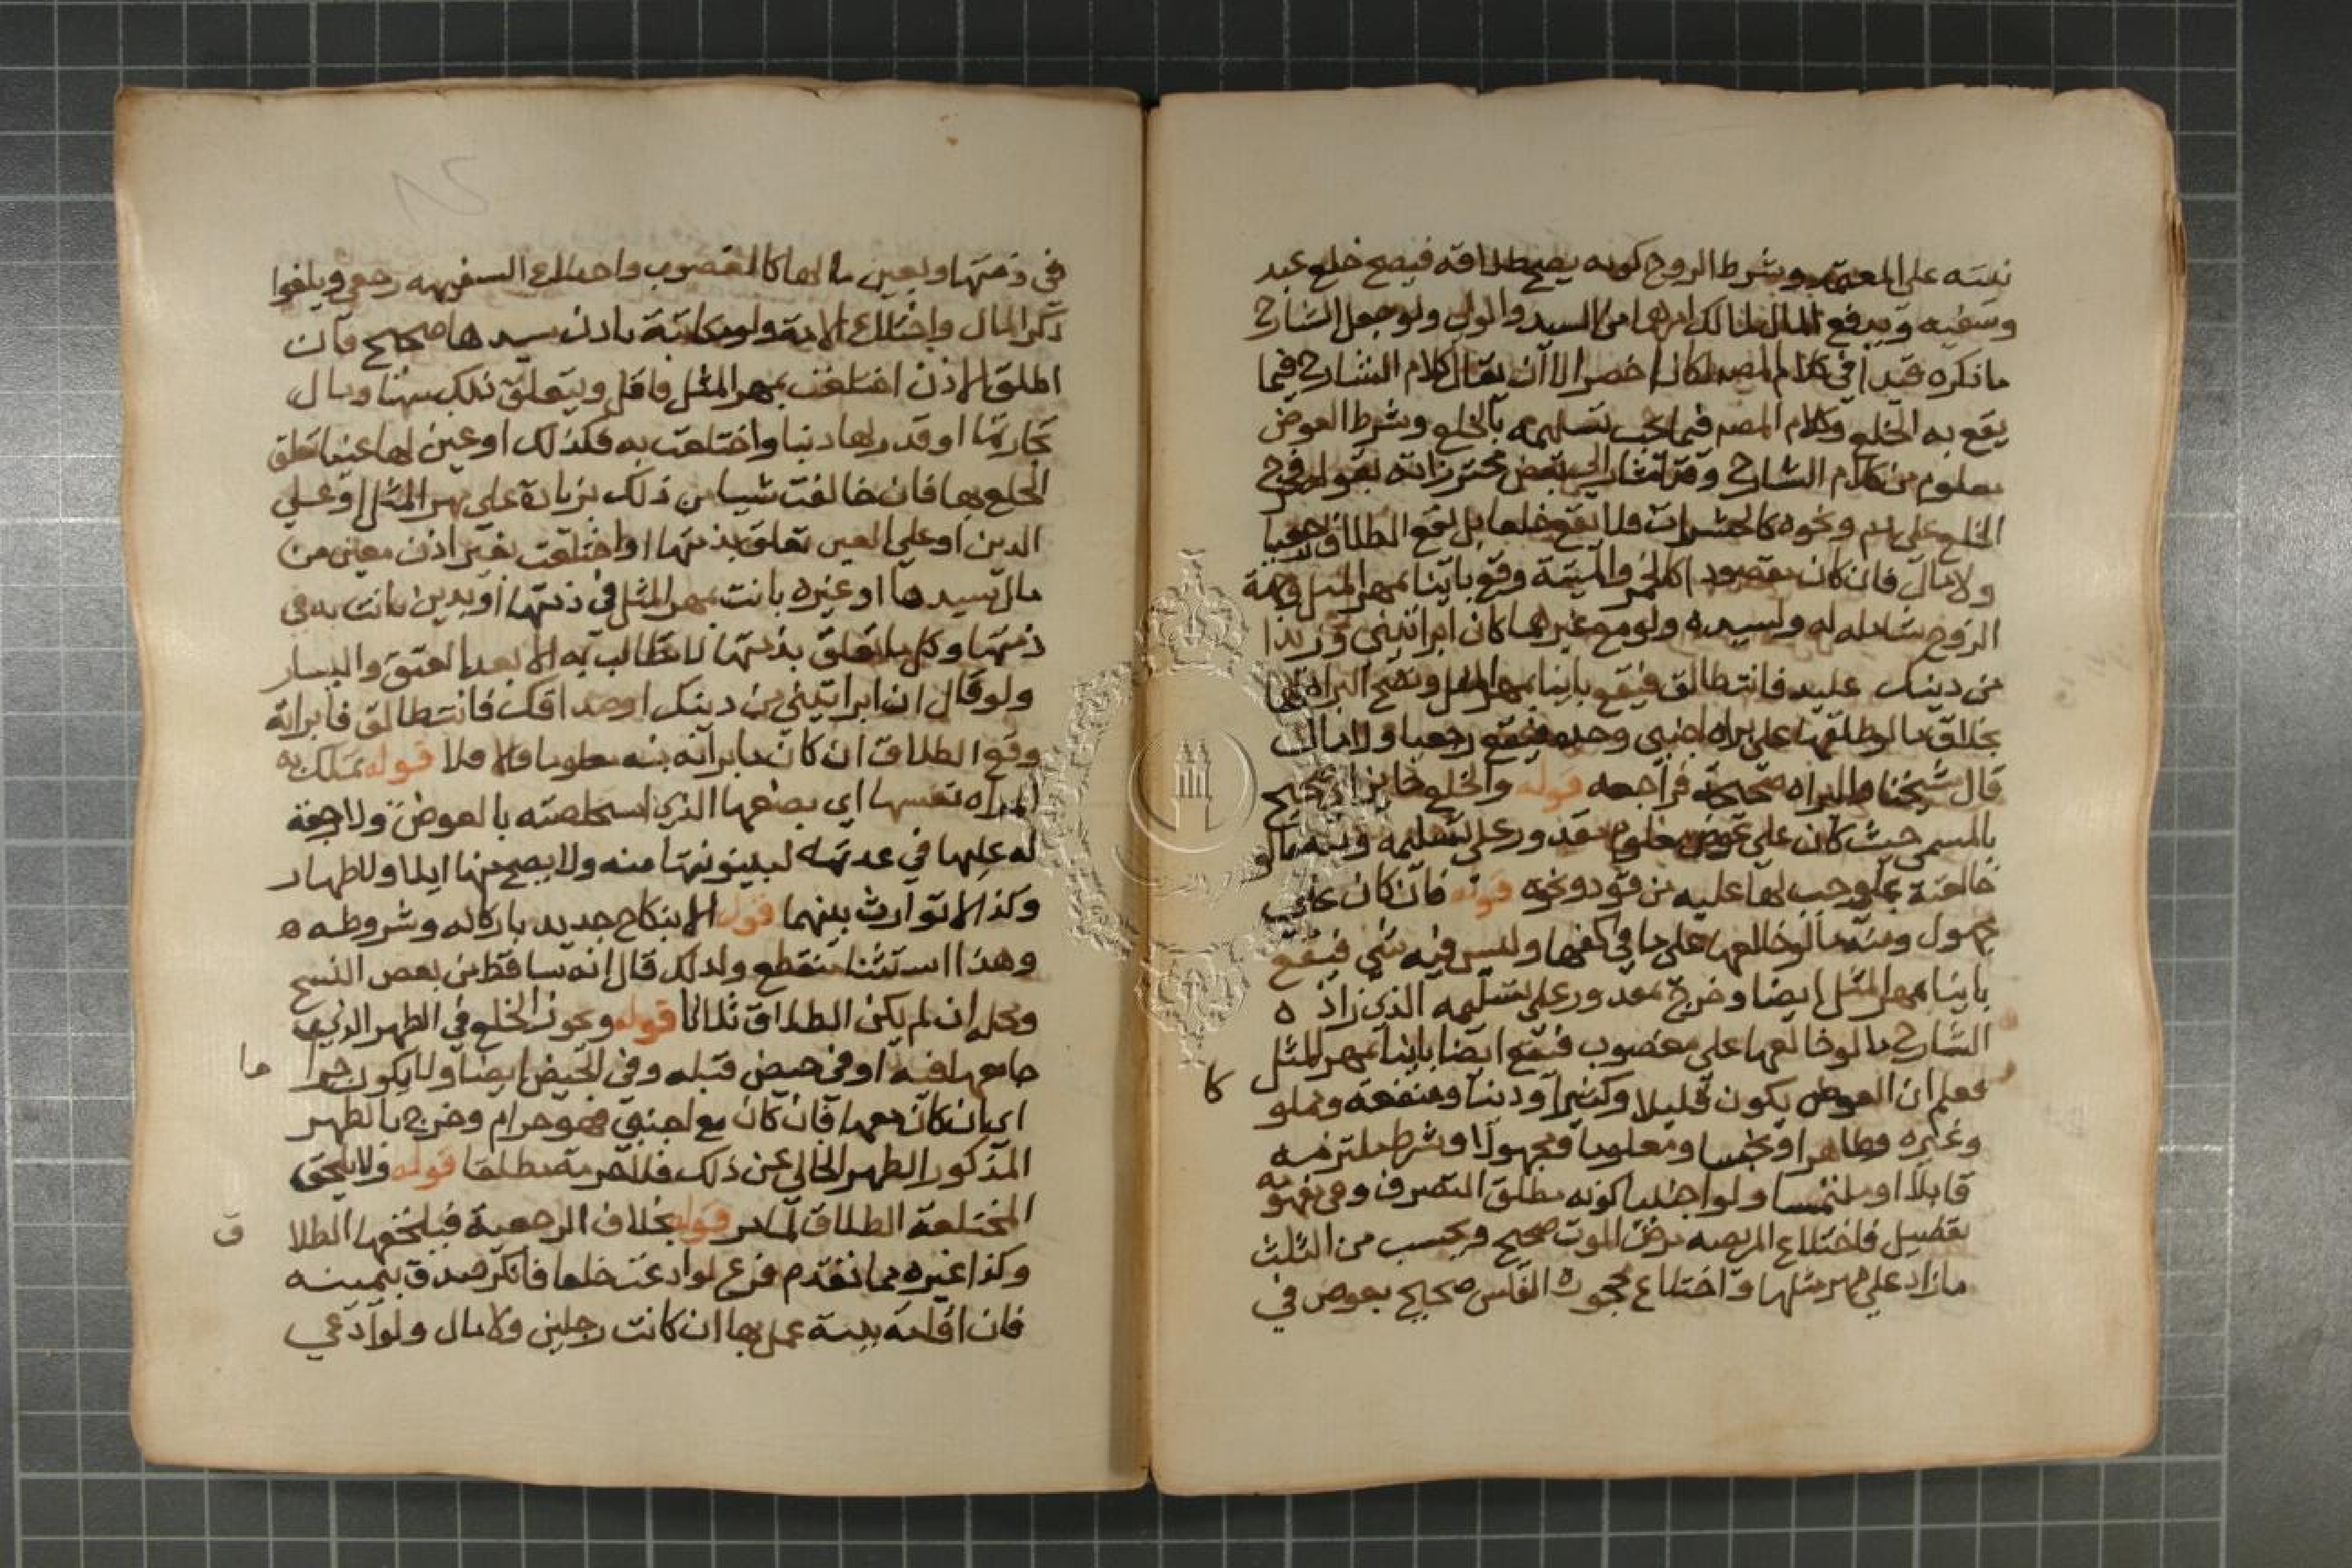 نيته على المعتمد وشرط الزوج كونه يصح طلاقه فيصح خلع عبد
وسفيه ويدفع المال لمالك امرهما من السيد والولي ولو جعل الشارح
ما ذكره قيدا في كلام المصـ لكان اخصر الا ان يقال كلام الشارح فيما
يقع به الخلع وكلام المصـ فيما يجب تسليمه بالخلع وشرط العوض
معلوم من كلام الشارح وقد اشار الى بعض محترزاته بقوله فخرج
الخلع على دم ونحوه كالحشرات فلا يقع خلعا بل يقع الطلاق رجعيا
ولا مال فان كان مقصودا كالخمر والميتة وقع باينا بمهر المثل وجهة
الزوج شاملة له ولسيده ولو مع غيرهما كان ابراتيني وزيدا
من دينك عليه فانت طالق فيقع باينا بمهر المثل وتصح البراءة
بخلاف ما لو طلقها على براة اجنبي وحده فيقع رجعيا ولا مال
قال شيخنا والبراه صحيحة فراجعه قوله والخلع جايز اي صحيح
بالمسمى حيث كان على عوض معلوم مقدور على تسليمه ومنه ما لو
خالعته بما وجب لها عليه من قود ونحوه قوله فان كان على
مجهول ومنه ما لو خالعها على ما في كفها وليس فيه شي فيقع
باينا بمهر المثل ايضا وخرج بمقدور على تسليمه الذي زاده
الشارح ما لو خالعها على مغصوب فيقع ايضا باينا بمهر المثل
فعلم ان العوض يكون قليلا وكثيرا ودينا ومنفعة ومملو كا
وغيره وطاهرا ونجسا ومعلوما ومجهولا وشرط ملتزمه
قابلا او ملتمسا ولو اجنبيا كونه مطلق التصرف وفي مفهومه
تفصيل فاختلاع المريضه مرض الموت صحيح ويحسب من الثلث
مازاد على مهر مثلها واختلاع محجورة الفلس صحيح بعوض في
في ذمتها وبعين مالها كالمغصوب واختلاع السفيهه رجعي ويلغوا
ذكر المال واختلاع الامة ولو مكاتبة باذن سيدها صحيح فان
اطلق الاذن اختلعت بمهر المثل فاقل ويتعلق ذلك بكسبها ومال
تجارتها او قدر لها دينا واختلعت به فكذلك او عين لها عينا تعلق
الخلع بها فان خالفت شيا من ذلك بزيادة على مهر المثل او على
الدين او على العين تعلق بذمتها او اختلعت بغير اذن معين من
مال سيدها او غيره بانت بمهر المثل في ذمتها او بدين بانت به في
ذمتها وكل ما تعلق بذمتها لا تطالب به الا بعد العتق واليسار
ولو قال ان ابراتيني من دينك او صداقك فانت طالق فابراته
وقع الطلاق ان كان ما برأته منه معلوما والا فلا قوله تملك به
المراه نفسها اي بضعها الذي استخلصته بالعوض ولا رجعة
له عليها في عدتها لبينونتها منه ولا يصح منها ايلا ولا ظهار
وكذا لا توارث بينهما قوله الا بنكاح جديد باركانه وشروطه ه
وهذا استثنا منقطع ولذلك قال انه ساقط من بعض النسخ
ومحله ان لم يكن الطلاق ثلاثا قوله ويجوز الخلع في الطهر الذي
جامعها فيه او في حيض قبله وفي الحيض ايضا ولا يكون حرا ما
اي بان كان معها فان كان مع اجنبي فهو حرام وخرج بالطهر
المذكور الطهر الخالي عن ذلك فلا حرمة مطلقا قوله ولا يلحق
المختلعة الطلاق لما مر قوله بخلاف الرجعية فيلحقها الطلا ق
وكذا غيره مما تقدم فرع لو ادعت خلعا فانكر صدق بيمينه
فان اقامت بينة عمل بها ان كانت رجلين ولا مال ولو ادعي